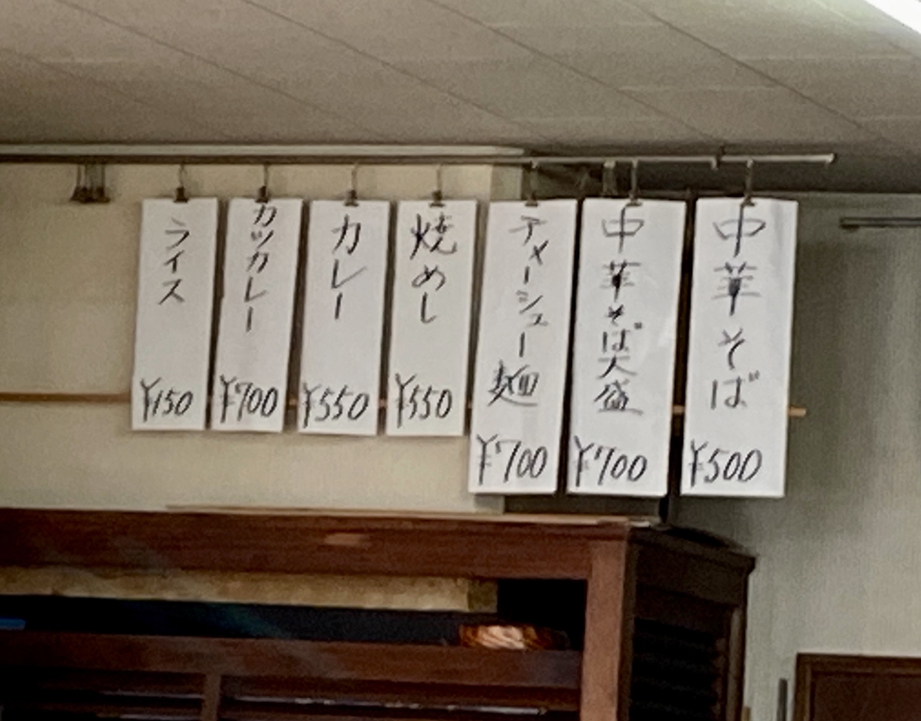 中華そば
¥500
中華そば大盛
¥700
チャーシュー麺
¥700
焼めし
¥550
カレー
¥550
カツカレー
¥700
ライス
¥150